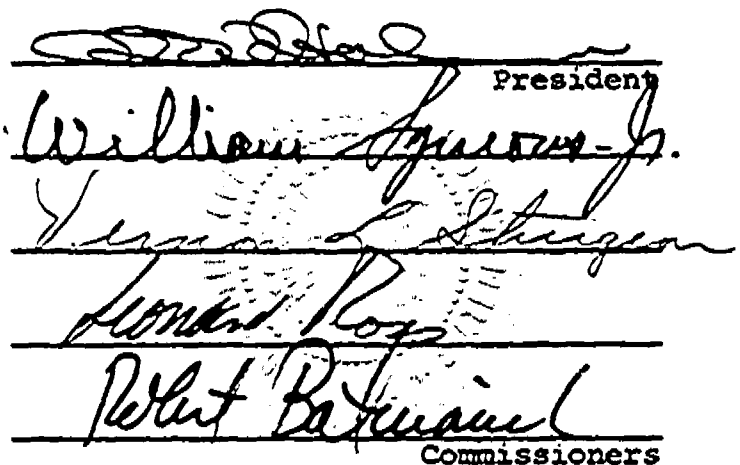 President
William Symons-Jr.
Vernon L Sturgeon
Leonard Ross
Robert Batinovich
Commissioners